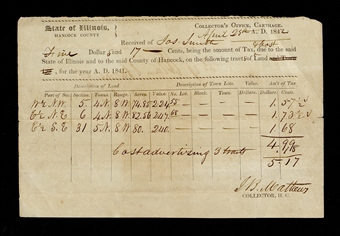 State of Illinois,
HANCOCK COUNTY
COLLECTOR'S OFFICE, CARTHAGE,
April 28th A. D. 1842
Received of Jas Smith
Five Dollars and 17 Cents, being the amount of Tax, due to the said
State of Illinois and to the said County of Hancock, on the following tracts of Land
, for the year A. D. 1841.
Description of Land Description of Town Lots Am't of Tax
Part of Sec. Section Town. Range Acres. Value No. Lot. Block. Town Value. Dollars. Cents.
N. W. 5 4 N. 8 W. 74.80 224 1. 57
N. E. 6 4 N. 8 W. 82.56 247 1. 73
S. E 31 5 N. 8 W. 80. 240 1 68
4.99
Cost advertising 3 tracts .18
5.17
J. B. Mathews
COLLECTOR, H. C.